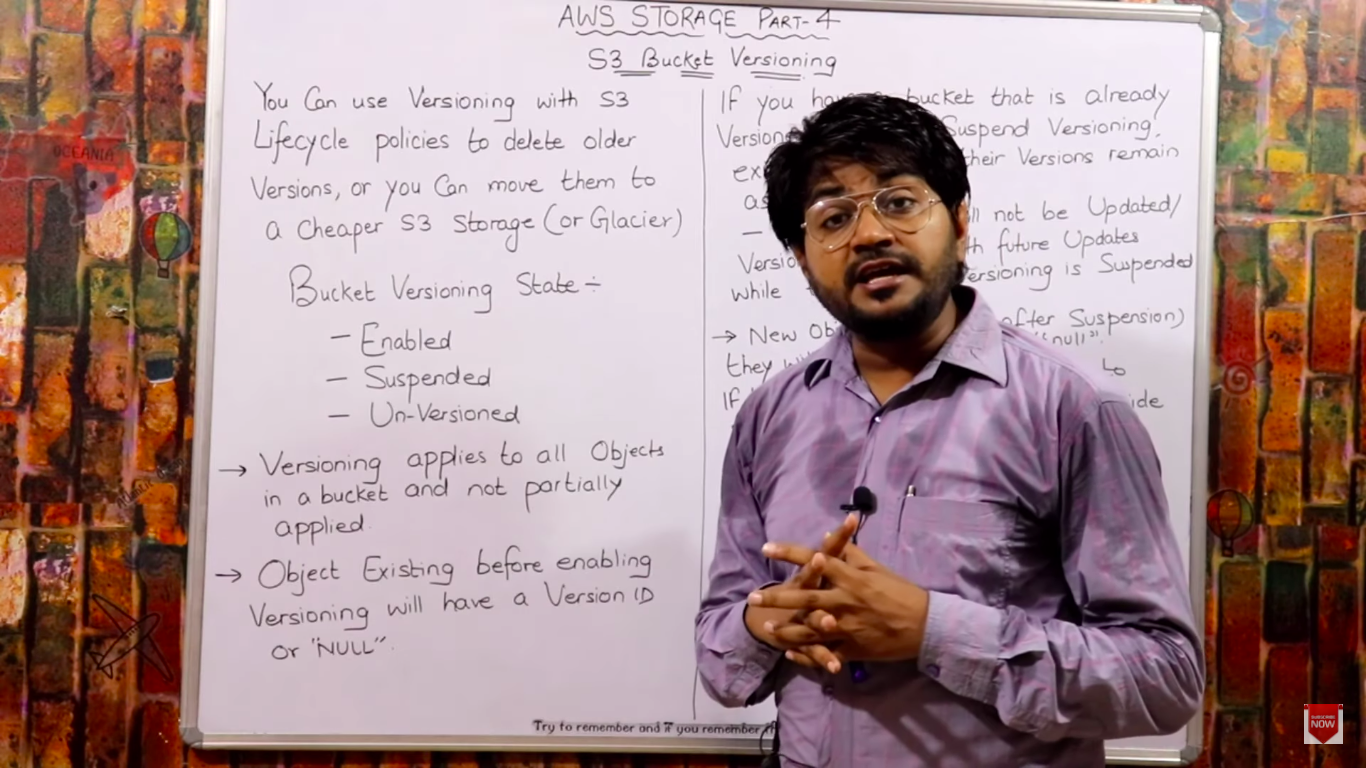 AWS STORAGE PART-4
S3 Bucket Versioning
You Can use Versioning with S3
Lifecycle policies to delete older
Versions, or you Can move them to
a Cheaper S3 Storage (or Glacier)
Bucket Versioning State ÷
– Enabled
– Suspended
– Un-Versioned
→ Versioning applies to all Objects
in a bucket and not partially
applied.
→ Object Existing before enabling
Versioning will have a Version ID
or "NULL".
If you bucket that is already
Suspend Versioning,
their Versions remain
as
– not be Updated/
future Updates
while Versioning is Suspended
→ New after Suspension)
they "null".
If
Try to remember and if you remember
OCEANIA
SUBSCRIBE
NOW